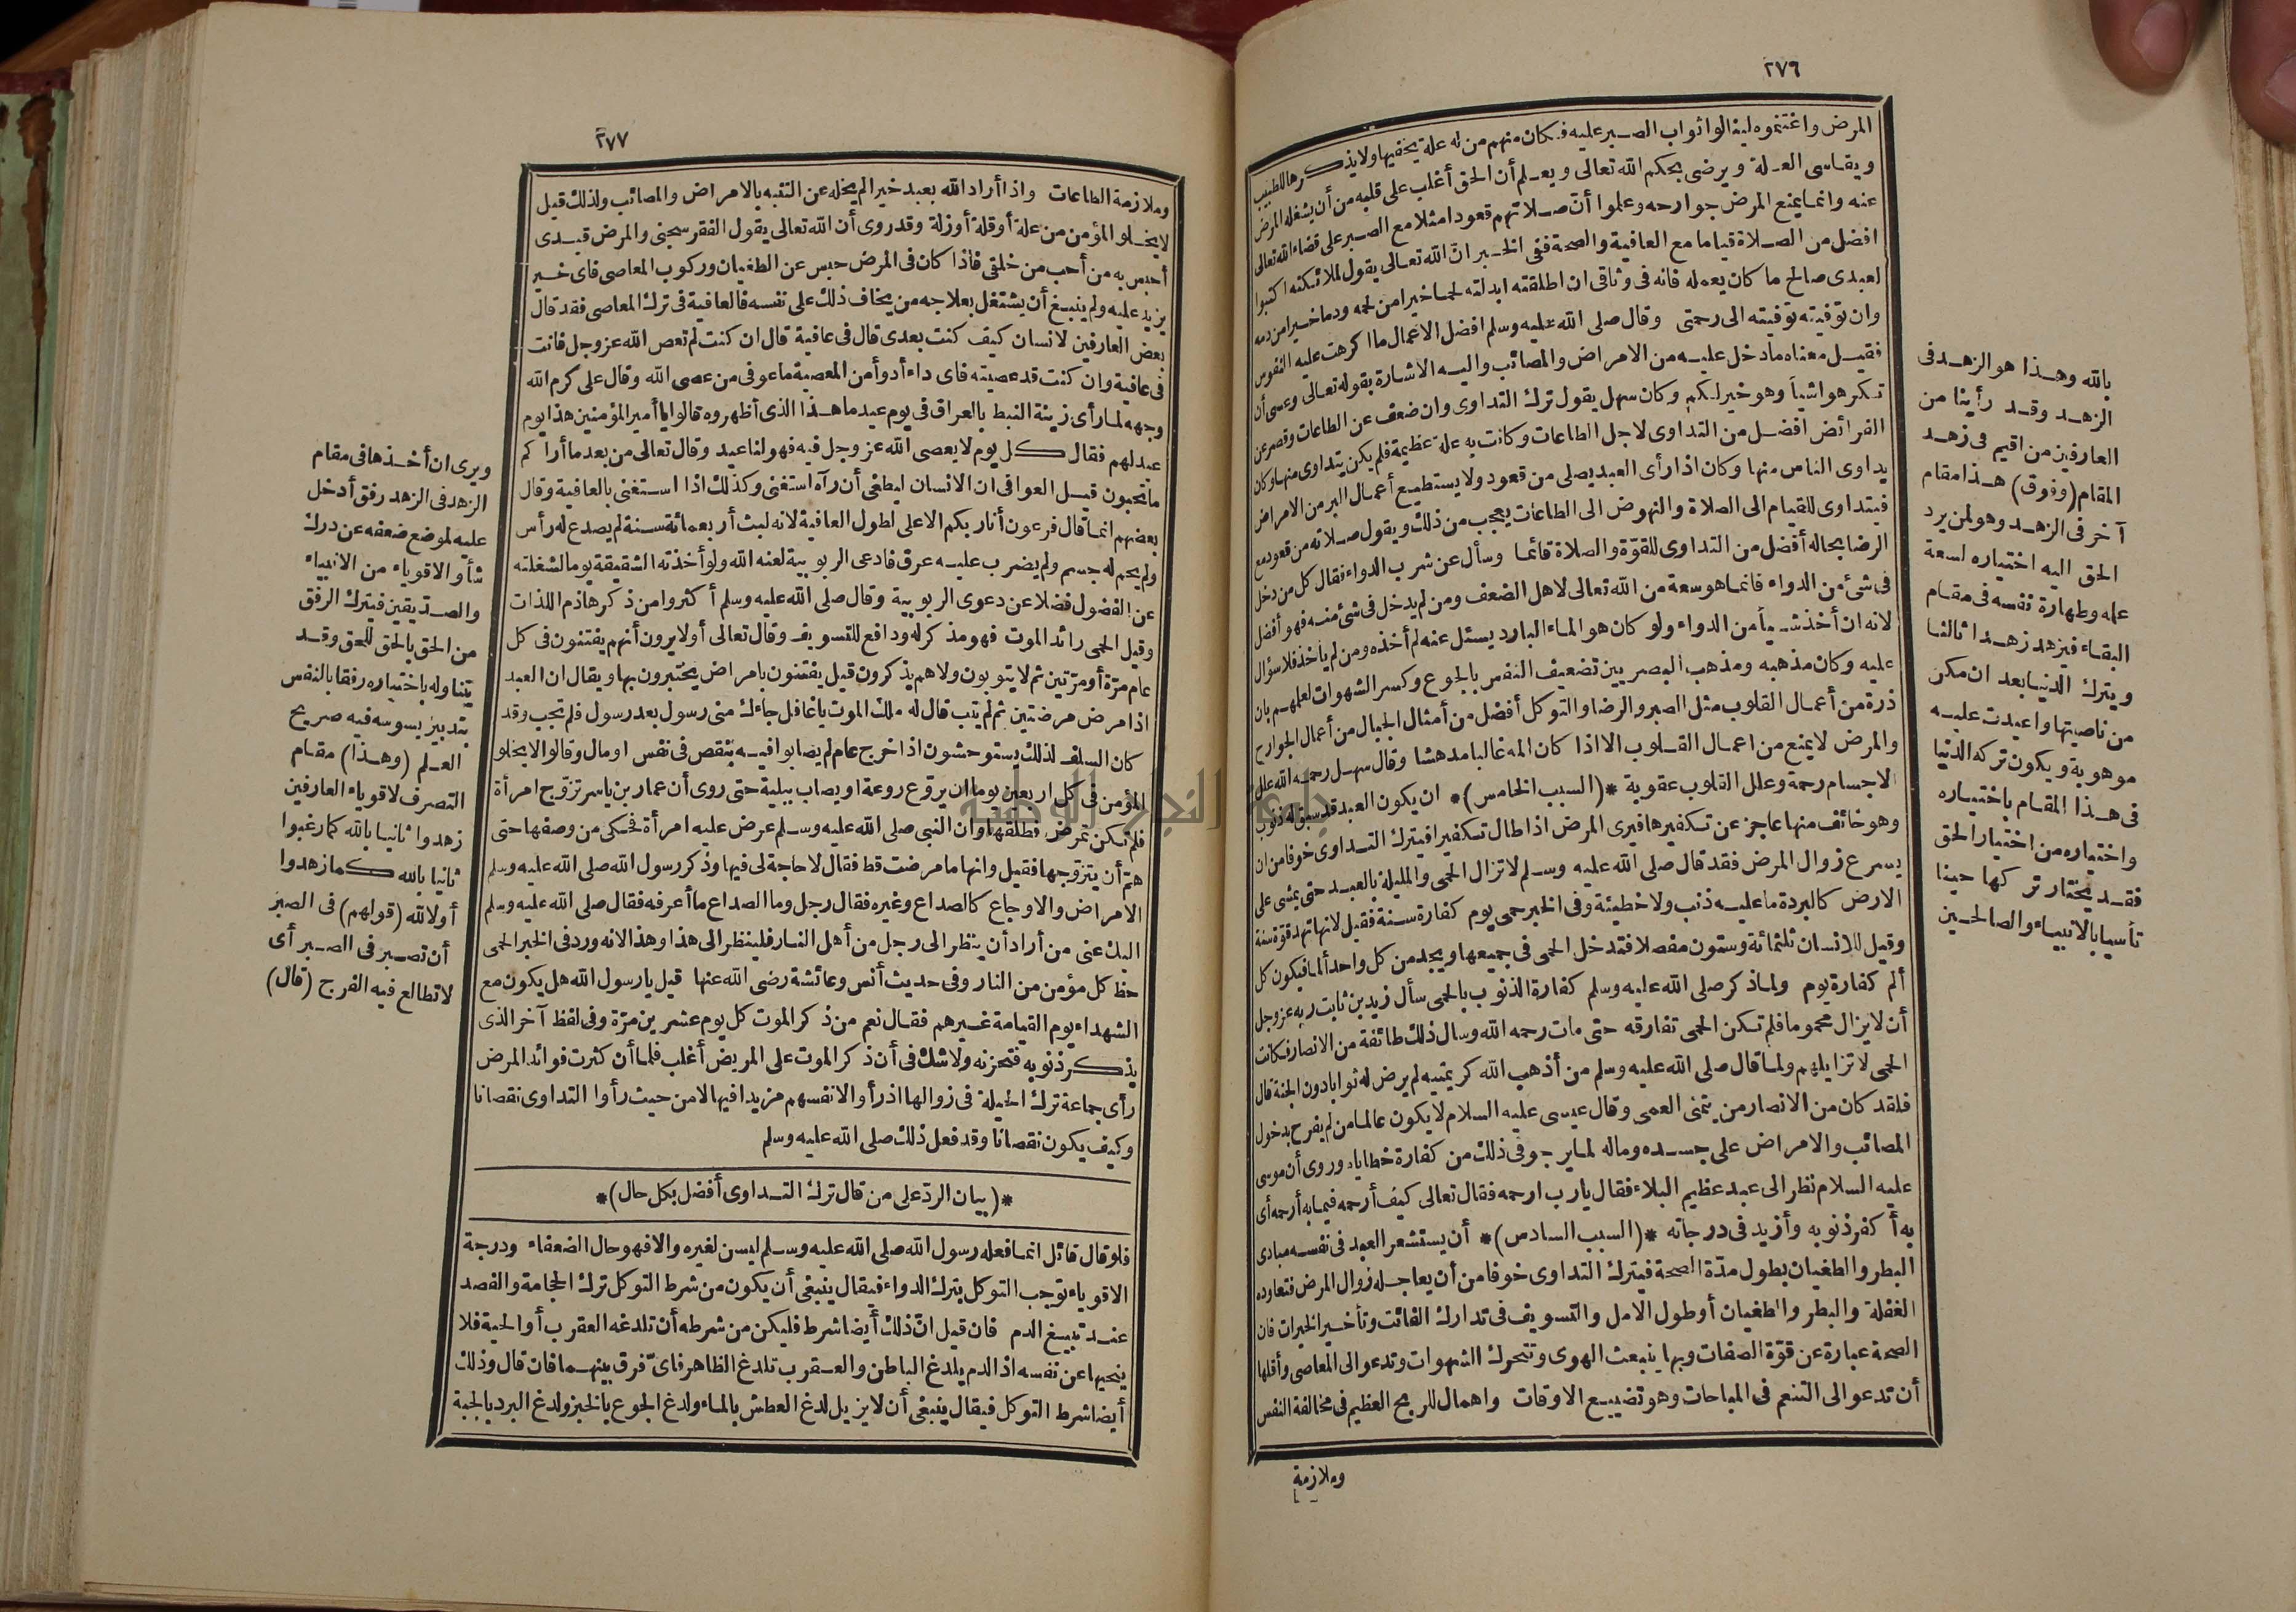 ٢٧٦
المرض واغتنموه لينالوا ثواب الصبر عليه فكان منهم من له علة يخفيها ولا يذكرها للطبيب
ويقاسى العلة ويرضى بحكم الله تعالى ويعلم أن الحق أغلب على قلبه من أن يشغله المرض
عنه وانما يمنع المرض جوارحه وعلموا أن صلاتهم قعودا مثلا مع الصبر على قضاء الله تعالى
افضل من الصلاة قياما مع العافية والصحة ففى الخبر ان الله تعالى يقول لملائكته اكتبوا
لعبدى صالح ما كان يعمله فانه فى وثاقى ان اطلقته ابدلته لحما خيرا من لحمه ودما خيرا من دمه
وان توفيته توفيته الى رحمتى وقال صلى الله عليه وسلم افضل الاعمال ما اكرهت عليه النفوس
فقيل معناه ما دخل عليه من الامراض والمصائب واليه الاشارة بقوله تعالى وعسى أن
تكرهوا شيأ وهو خير لكم وكان سهل يقول ترك التداوى وان ضعف عن الطاعات وقصر عن
الفرائض افضل من التداوى لاجل الطاعات وكانت به علة عظيمة فلم يكن يتداوى منها وكان
يداوى الناس منها وكان اذا رأى العبد يصلى من قعود ولا يستطيع أعمال البر من الامراض
فيتداوى للقيام الى الصلاة والنهوض الى الطاعات يعجب من ذلك ويقول صلاته من قعود مع
الرضا بحاله أفضل من التداوى للقوّة والصلاة قائما وسأل عن شرب الدواء فقال كل من دخل
فى شئ من الدواء فانما هو سعة من الله تعالى لاهل الضعف ومن لم يدخل فى شئ منه فهو أفضل
لانه ان أخذ شيأ من الدواء ولو كان هو الماء البارد يسئل عنه لم أخذه ومن لم يأخذ فلا سؤال
عليه وكان مذهبه ومذهب البصريين تضعيف النفس بالجوع وكسر الشهوات لعلمهم بان
ذرة من أعمال القلوب مثل الصبر والرضا والتوكل أفضل من أمثال الجبال من أعمال الجوارح
والمرض لا يمنع من اعمال القلوب الا اذا كان المه غالبا مدهشا وقال سهل رحمه الله علل
الاجسام رحمة وعلل القلوب عقوبة *(السبب الخامس)* ان يكون العبد قد سبق له ذنوب
وهو خائف منها عاجز عن تكفيرها فيرى المرض اذا طال تكفيرا فيترك التداوى خوفا من ان
يسرع زوال المرض فقد قال صلى الله عليه وسلم لا تزال الحمى والمليلة بالعبد حتى يمشى على
الارض كالبردة ما عليه ذنب ولا خطيئة وفى الخبر حمى يوم كفارة سنة فقيل لانها تهد قوة سنة
وقيل للانسان ثلثمائة وستون مفصلا فتدخل الحمى فى جميعها ويجد من كل واحد ألما فيكون كل
ألم كفارة يوم ولما ذكر صلى الله عليه وسلم كفارة الذنوب بالحمى سأل زيد بن ثابت ربه عز وجل
أن لا يزال محموما فلم تكن الحمى تفارقه حتى مات رحمه الله وسال ذلك طائفة من الانصار فكانت
الحمى لا تزايلهم ولما قال صلى الله عليه وسلم من أذهب الله كريمتيه لم يرض له ثوابا دون الجنة قال
فلقد كان من الانصار من يتمنى العمى وقال عيسى عليه السلام لا يكون عالما من لم يفرح بدخول
المصائب والامراض على جسده وماله لما يرجو فى ذلك من كفارة خطاياه وروى أن موسى
عليه السلام نظر الى عبد عظيم البلاء فقال يا رب ارحمه فقال تعالى كيف أرحمه فيما به أرحمه أى
به أكفر ذنوبه وأزيد فى درجاته *(السبب السادس)* أن يستشعر العبد فى نفسه مبادى
البطر والطغيان بطول مدّة الصحة فيترك التداوى خوفا من أن يعاجله زوال المرض فتعاوده
الغفلة والبطر والطغيان أو طول الامل والتسويف فى تدارك الفائت وتأخير الخيرات فان
الصحة عبارة عن قوّة الصفات وبها ينبعث الهوى وتتحرك الشهوات وتدعو الى المعاصى وأقلها
أن تدعو الى التنعم فى المباحات وهو تضييع الاوقات واهمال للربح العظيم فى مخالفة النفس
وملازمة
بالله وهذا هو الزهد فى
الزهد وقد رأينا من
العارفين من اقيم فى زهد
المقام (وفوق) هذا مقام
آخر فى الزهد وهو لمن يرد
الحق اليه اختياره لسعة
علمه وطهارة نفسه فى مقام
البقاء فيزهد زهدا ثالثا
ويترك الدنيا بعد ان مكن
من ناصيتها واعيدت عليه
موهوبة ويكون تركه الدنيا
فى هذا المقام باختياره
واختياره من اختيار الحق
فقد يختار تركها حينا
تأسيا بالانبياء والصالحين
٢٧٧
وملازمة الطاعات واذا أراد الله بعبد خيرا لم يخله عن التنبه بالامراض والمصائب ولذلك قيل
لا يخلو المؤمن من علة أو قلة أو زلة وقد روى أن الله تعالى يقول الفقر سجنى والمرض قيدى
أحبس به من أحب من خلقى فاذا كان فى المرض حبس عن الطغيان وركوب المعاصى فاى خير
يزيد عليه ولم ينبغ أن يشتغل بعلاجه من يخاف ذلك على نفسه فالعافية فى ترك المعاصى فقد قال
بعض العارفين لانسان كيف كنت بعدى قال فى عافية قال ان كنت لم تعص الله عز وجل فانت
فى عافية وان كنت قد عصيته فاى داء أدوأ من المعصية ما عوفى من عصى الله وقال على كرم الله
وجهه لما رأى زينة النبط بالعراق فى يوم عيد ما هذا الذى أظهروه قالوا يا أمير المؤمنين هذا يوم
عيد لهم فقال كل يوم لا يعصى الله عز وجل فيه فهو لنا عيد وقال تعالى من بعد ما أراكم
ما تحبون قيل العوافى ان الانسان ليطغى أن رآه استغنى وكذلك اذا استغنى بالعافية وقال
بعضهم انما قال فرعون أنا ربكم الاعلى لطول العافية لانه لبث أربعمائة سنة لم يصدع له رأس
ولم يحم له جسم ولم يضرب عليه عرق فادعى الربوبية لعنه الله ولو أخذته الشقيقة يوما لشغلته
عن الفضول فضلا عن دعوى الربوبية وقال صلى الله عليه وسلم أكثروا من ذكر هاذم اللذات
وقيل الحمى رائد الموت فهو مذكر له ودافع للتسويف وقال تعالى أولا يرون أنهم يفتنون فى كل
عام مرّة أو مرّتين ثم لا يتوبون ولا هم يذكرون قيل يفتنون بامراض يختبرون بها ويقال ان العبد
اذا مرض مرضتين ثم لم يتب قال له ملك الموت يا غافل جاءك منى رسول بعد رسول فلم تجب وقد
كان السلف لذلك يستوحشون اذا خرج عام لم يصابوا فيه بنقص فى نفس او مال وقالوا لا يخلو
المؤمن فى كل اربعين يوما ان يروّع روعة او يصاب ببلية حتى روى أن عمار بن ياسر تزوّج امرأة
فلم تكن تمرض فطلقها وان النبى صلى الله عليه وسلم عرض عليه امرأة فحكى من وصفها حتى
همّ أن يتزوّجها فقيل وانها ما مرضت قط فقال لا حاجة لى فيها وذكر رسول الله صلى الله عليه وسلم
الامراض والاوجاع كالصداع وغيره فقال رجل وما الصداع ما أعرفه فقال صلى الله عليه وسلم
اليك عنى من أراد أن ينظر الى رجل من أهل النار فلينظر الى هذا وهذا لانه ورد فى الخبر الحمى
حظ كل مؤمن من النار وفى حديث أنس وعائشة رضى الله عنها قيل يا رسول الله هل يكون مع
الشهداء يوم القيامة غيرهم فقال نعم من ذكر الموت كل يوم عشرين مرّة وفى لفظ آخر الذى
يذكر ذنوبه فتحزنه ولا شك فى أن ذكر الموت على المريض أغلب فلما أن كثرت فوائد المرض
رأى جماعة ترك الحيلة فى زوالها اذ رأوا لانفسهم مزيدا فيها لا من حيث رأوا التداوى نقصانا
وكيف يكون نقصانا وقد فعل ذلك صلى الله عليه وسلم
*(بيان الردّ على من قال ترك التداوى أفضل بكل حال)*
فلو قال قائل انما فعله رسول الله صلى الله عليه وسلم ليسن لغيره والا فهو حال الضعفاء ودرجة
الاقوياء توجب التوكل بترك الدواء فيقال ينبغى أن يكون من شرط التوكل ترك الحجامة والفصد
عند تبيغ الدم فان قيل انّ ذلك أيضا شرط فليكن من شرطه أن تلدغه العقرب أو الحية فلا
ينحيها عن نفسه اذ الدم يلدغ الباطن والعقرب تلدغ الظاهر فاىّ فرق بينهما فان قال وذلك
أيضا شرط التوكل فيقال ينبغى أن لا يزيل لدغ العطش بالماء ولدغ الجوع بالخبز ولدغ البرد بالجبة
ويرى ان أخذها فى مقام
الزهد فى الزهد رفق أدخل
عليه لموضع ضعفه عن درك
شأو الاقوياء من الانبياء
والصدّيقين فيترك الرفق
من الحق بالحق للحق وقد
يتناوله باختياره رفقا بالنفس
بتدبير يسوسه فيه صريح
العلم (وهذا) مقام
التصرف لاقوياء العارفين
زهدوا ثانيا بالله كما رغبوا
ثانيا بالله كما زهدوا
أولا لله (قولهم) فى الصبر
أن تصبر فى الصبر أى
لا تطالع فيه الفرج (قال)